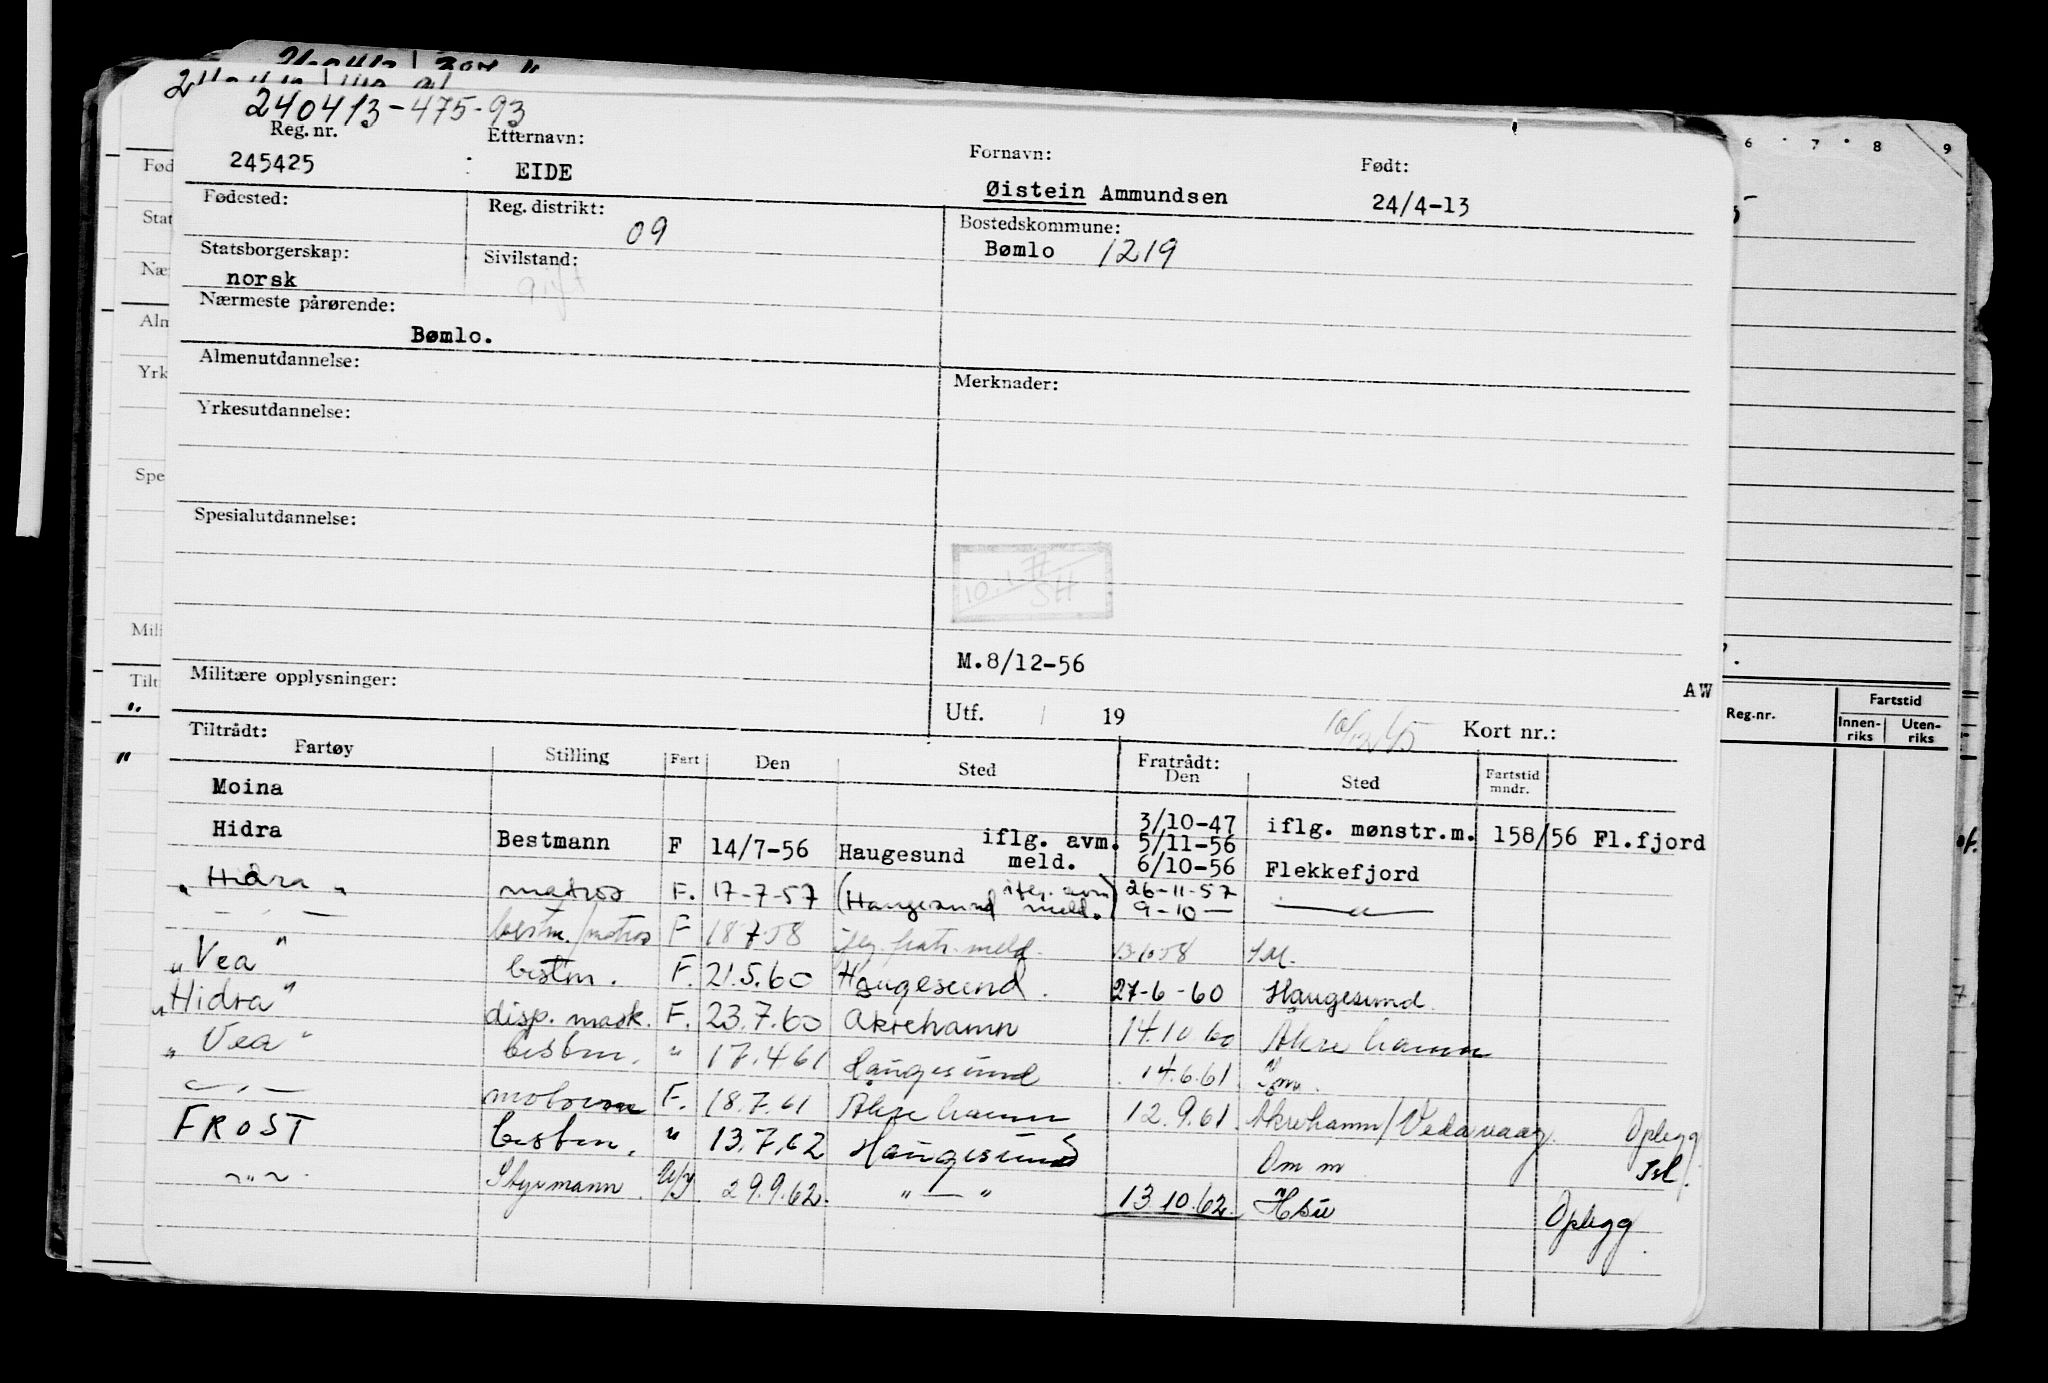 240413-475-93
Reg. nr. Etternavn: Fornavn: Født:
245425 : EIDE Øistein Ammundsen 24/4-13
Fødested: Reg. distrikt: 09 Bostedskommune:
Bømlo 1219
Statsborgerskap: Sivilstand:
norsk gift
Nærmeste pårørende:
Bømlo.
Almenutdannelse: Merknader:
Yrkesutdannelse:
Spesialutdannelse:
10.1.77
SH
M.8/12-56
Militære opplysninger: AW
Utf. / 19 Kort nr.:
Tiltrådt: Fratrådt:
Fartøy Stilling Fart Den Sted Den Sted Fartstid mndr.
Moina 3/10-47 iflg. mønstr.m. 158/56 Fl.fjord
Hidra Bestmann F 14/7-56 Haugesund iflg. avm. meld. 5/11-56
6/10-56 Flekkefjord
"Hidra" matros F. 17-7-57 (Haugesund iflg. avm. meld.) 26-11-57
9-10 — — " —
— " — bestm./matros F 18 7 58 iflg. fratr. meld. 13 10 58
"Vea" bestm. F. 21.5.60 Haugesund. 27-6-60 Haugesund.
"Hidra" disp. mask. F. 23.7.60 Åkrehamn 14.10.60 Åkrehamn
"Vea" bestm. " 17.4.61 Haugesund 14.6.61
— " — F. 18.7.61 Åkrehamn 12.9.61 Åkrehamn/Vedavaag. Oplegg
FROST bestm. " 13.7.62 Haugesund Om m Isl.
~ " ~ Styrmann. U/y. 29.9.62. " — " 13.10.62. Oplegg.
Fød
Stat
Nær
Alm
Yrk
Spe
Mili
Tilt
6 7 8 9
Reg.nr. Fartstid
Innen-riks Uten-riks